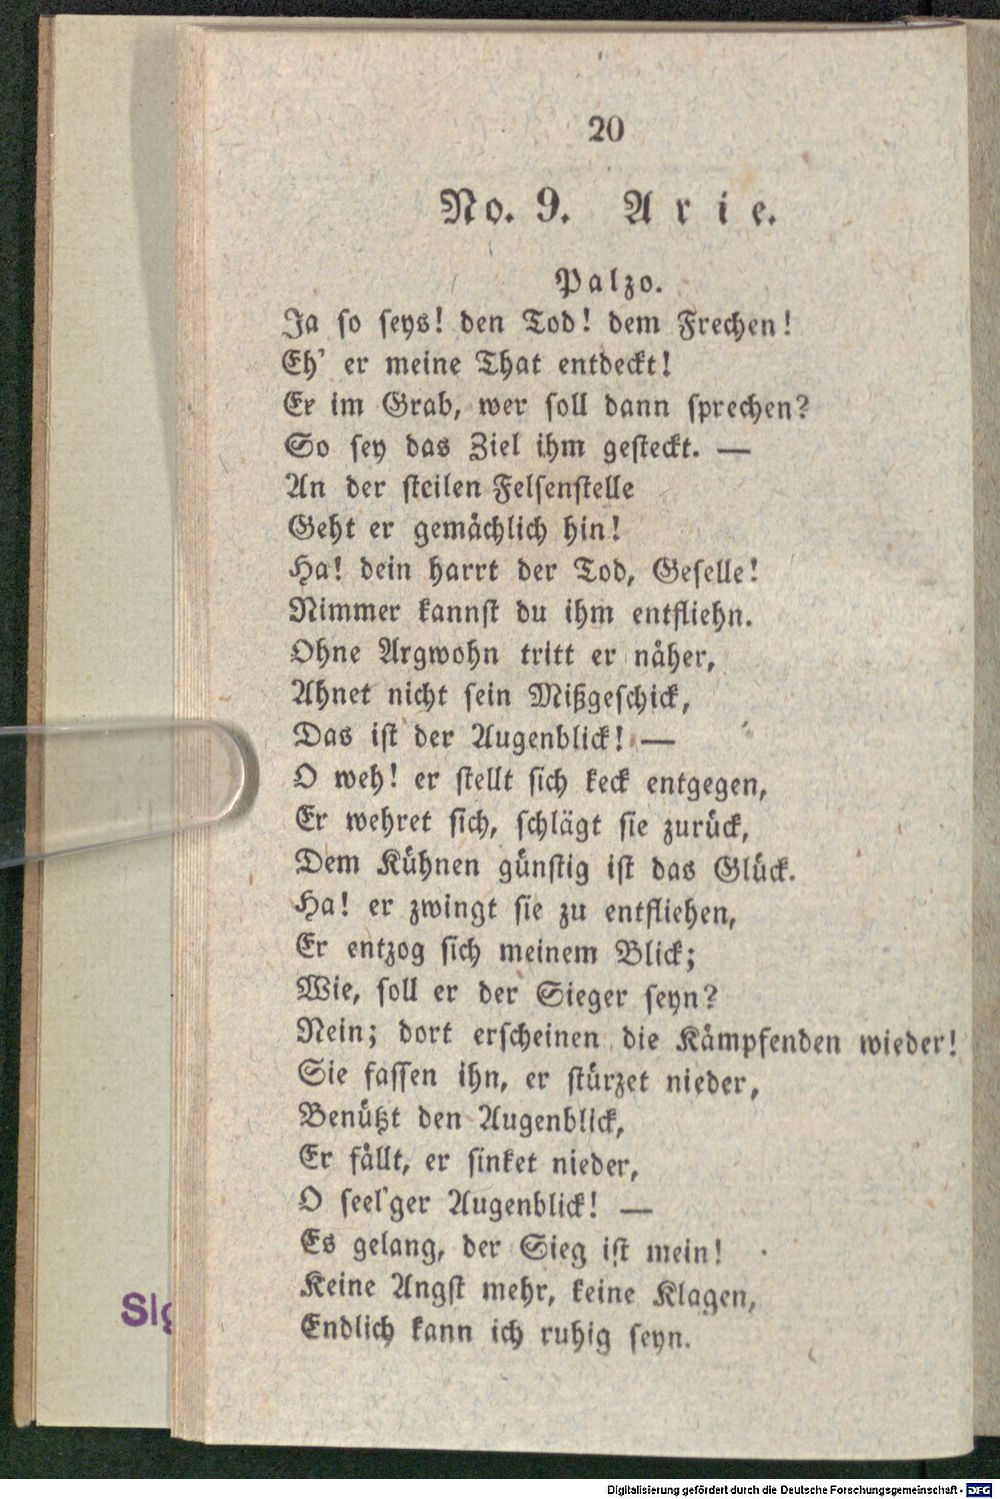 20
No. 9. Arie.
Palzo.
Ja so seys! den Tod! dem Frechen!
Eh' er meine That entdeckt!
Er im Grab, wer soll dann sprechen?
So sey das Ziel ihm gesteckt. —
An der steilen Felsenstelle
Geht er gemächlich hin!
Ha! dein harrt der Tod, Geselle!
Nimmer kannst du ihm entfliehn.
Ohne Argwohn tritt er näher,
Ahnet nicht sein Mißgeschick,
Das ist der Augenblick! —
O weh! er stellt sich keck entgegen,
Er wehret sich, schlägt sie zurück,
Dem Kühnen günstig ist das Glück.
Ha! er zwingt sie zu entfliehen,
Er entzog sich meinem Blick;
Wie, soll er der Sieger seyn?
Nein; dort erscheinen die Kämpfenden wieder!
Sie fassen ihn, er stürzet nieder,
Benützt den Augenblick,
Er fällt, er sinket nieder,
O seel'ger Augenblick! —
Es gelang, der Sieg ist mein!
Keine Angst mehr, keine Klagen,
Endlich kann ich ruhig seyn.
Digitalisierung gefördert durch die Deutsche Forschungsgemeinschaft - DFG